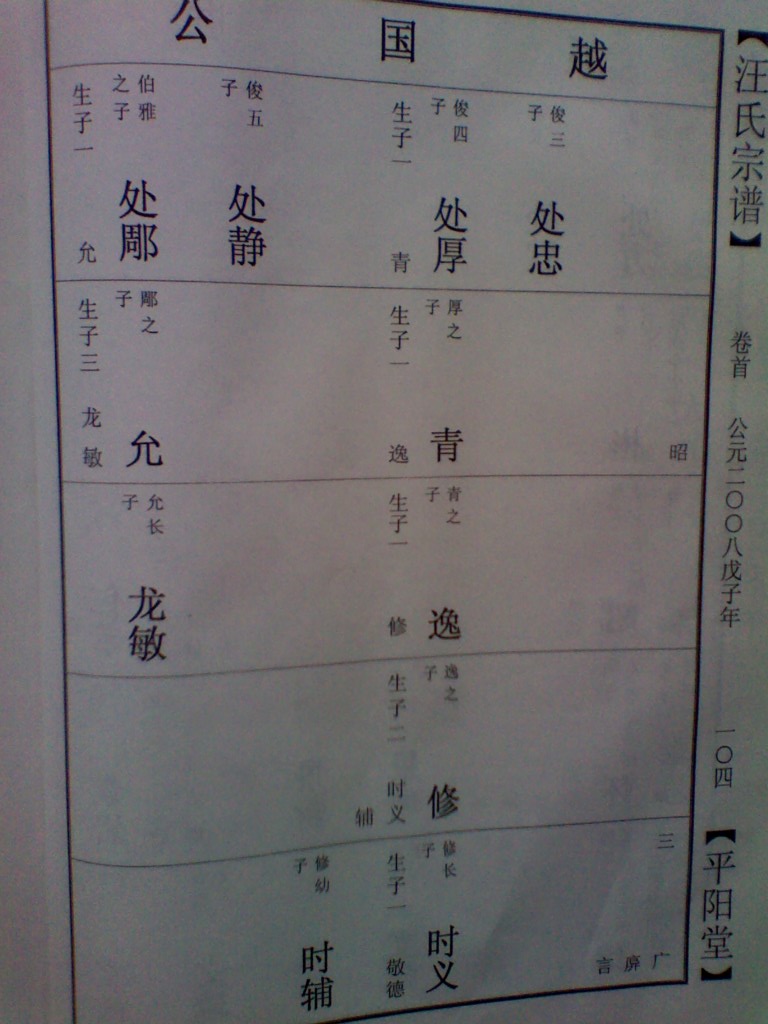 【汪氏宗谱】
卷首
公元二〇〇八戊子年
一〇四
【平阳堂】
越国公
俊三
子
处忠
俊四
子
处厚
生子一
青
俊五
子
处静
伯雅
之子
处郮
生子一
允
昭
厚之
子
青
生子一
逸
郮之
子
允
生子三
龙敏
青之
子
逸
生子一
修
允长
子
龙敏
逸之
子
修
生子二
时义
辅
三
广
言
修长
子
时义
生子一
敬德
修幼
子
时辅